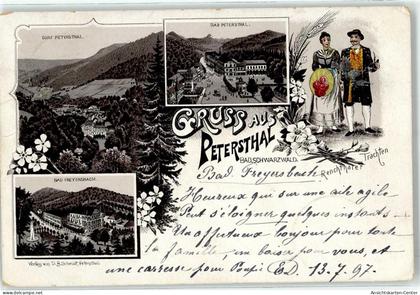 DORF PETERSTHAL.
BAD PETERSTHAL.
GRUSS AUS
PETERSTHAL
BAD. SCHWARZWALD.
Renchthaler
Trachten
BAD FREYERSBACH.
Bad Freyersbach
Heureux qui sur une aile agile
Peut s'éloigner quelques instants.
Un affectueux bonjour pour toute
la famille, un baiser pour vous, et
une caresse pour E.D. 13.7.97.
Verlag von
Petersthal.
Ansichtskarten-Center